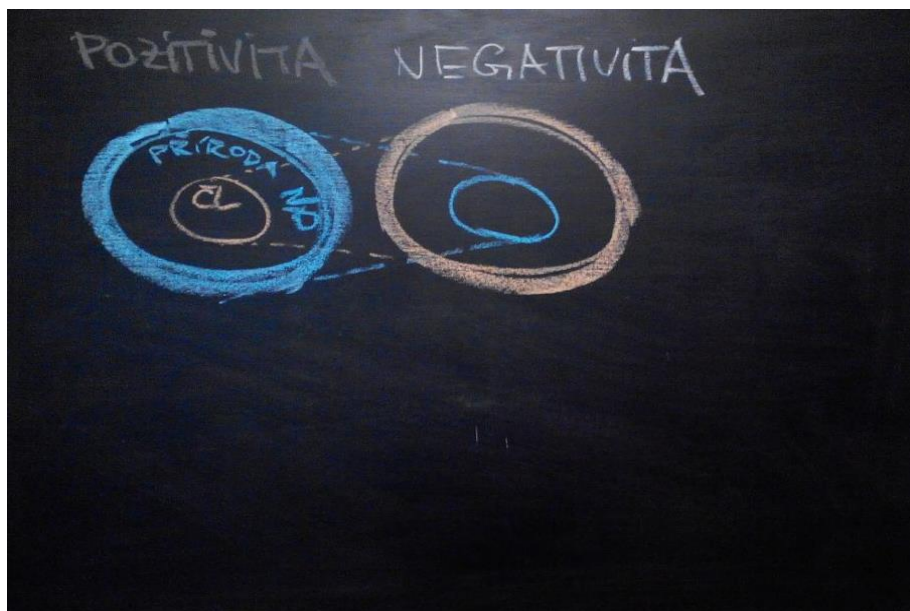 POZITIVITA NEGATIVITA
PŘÍRODA
ČL